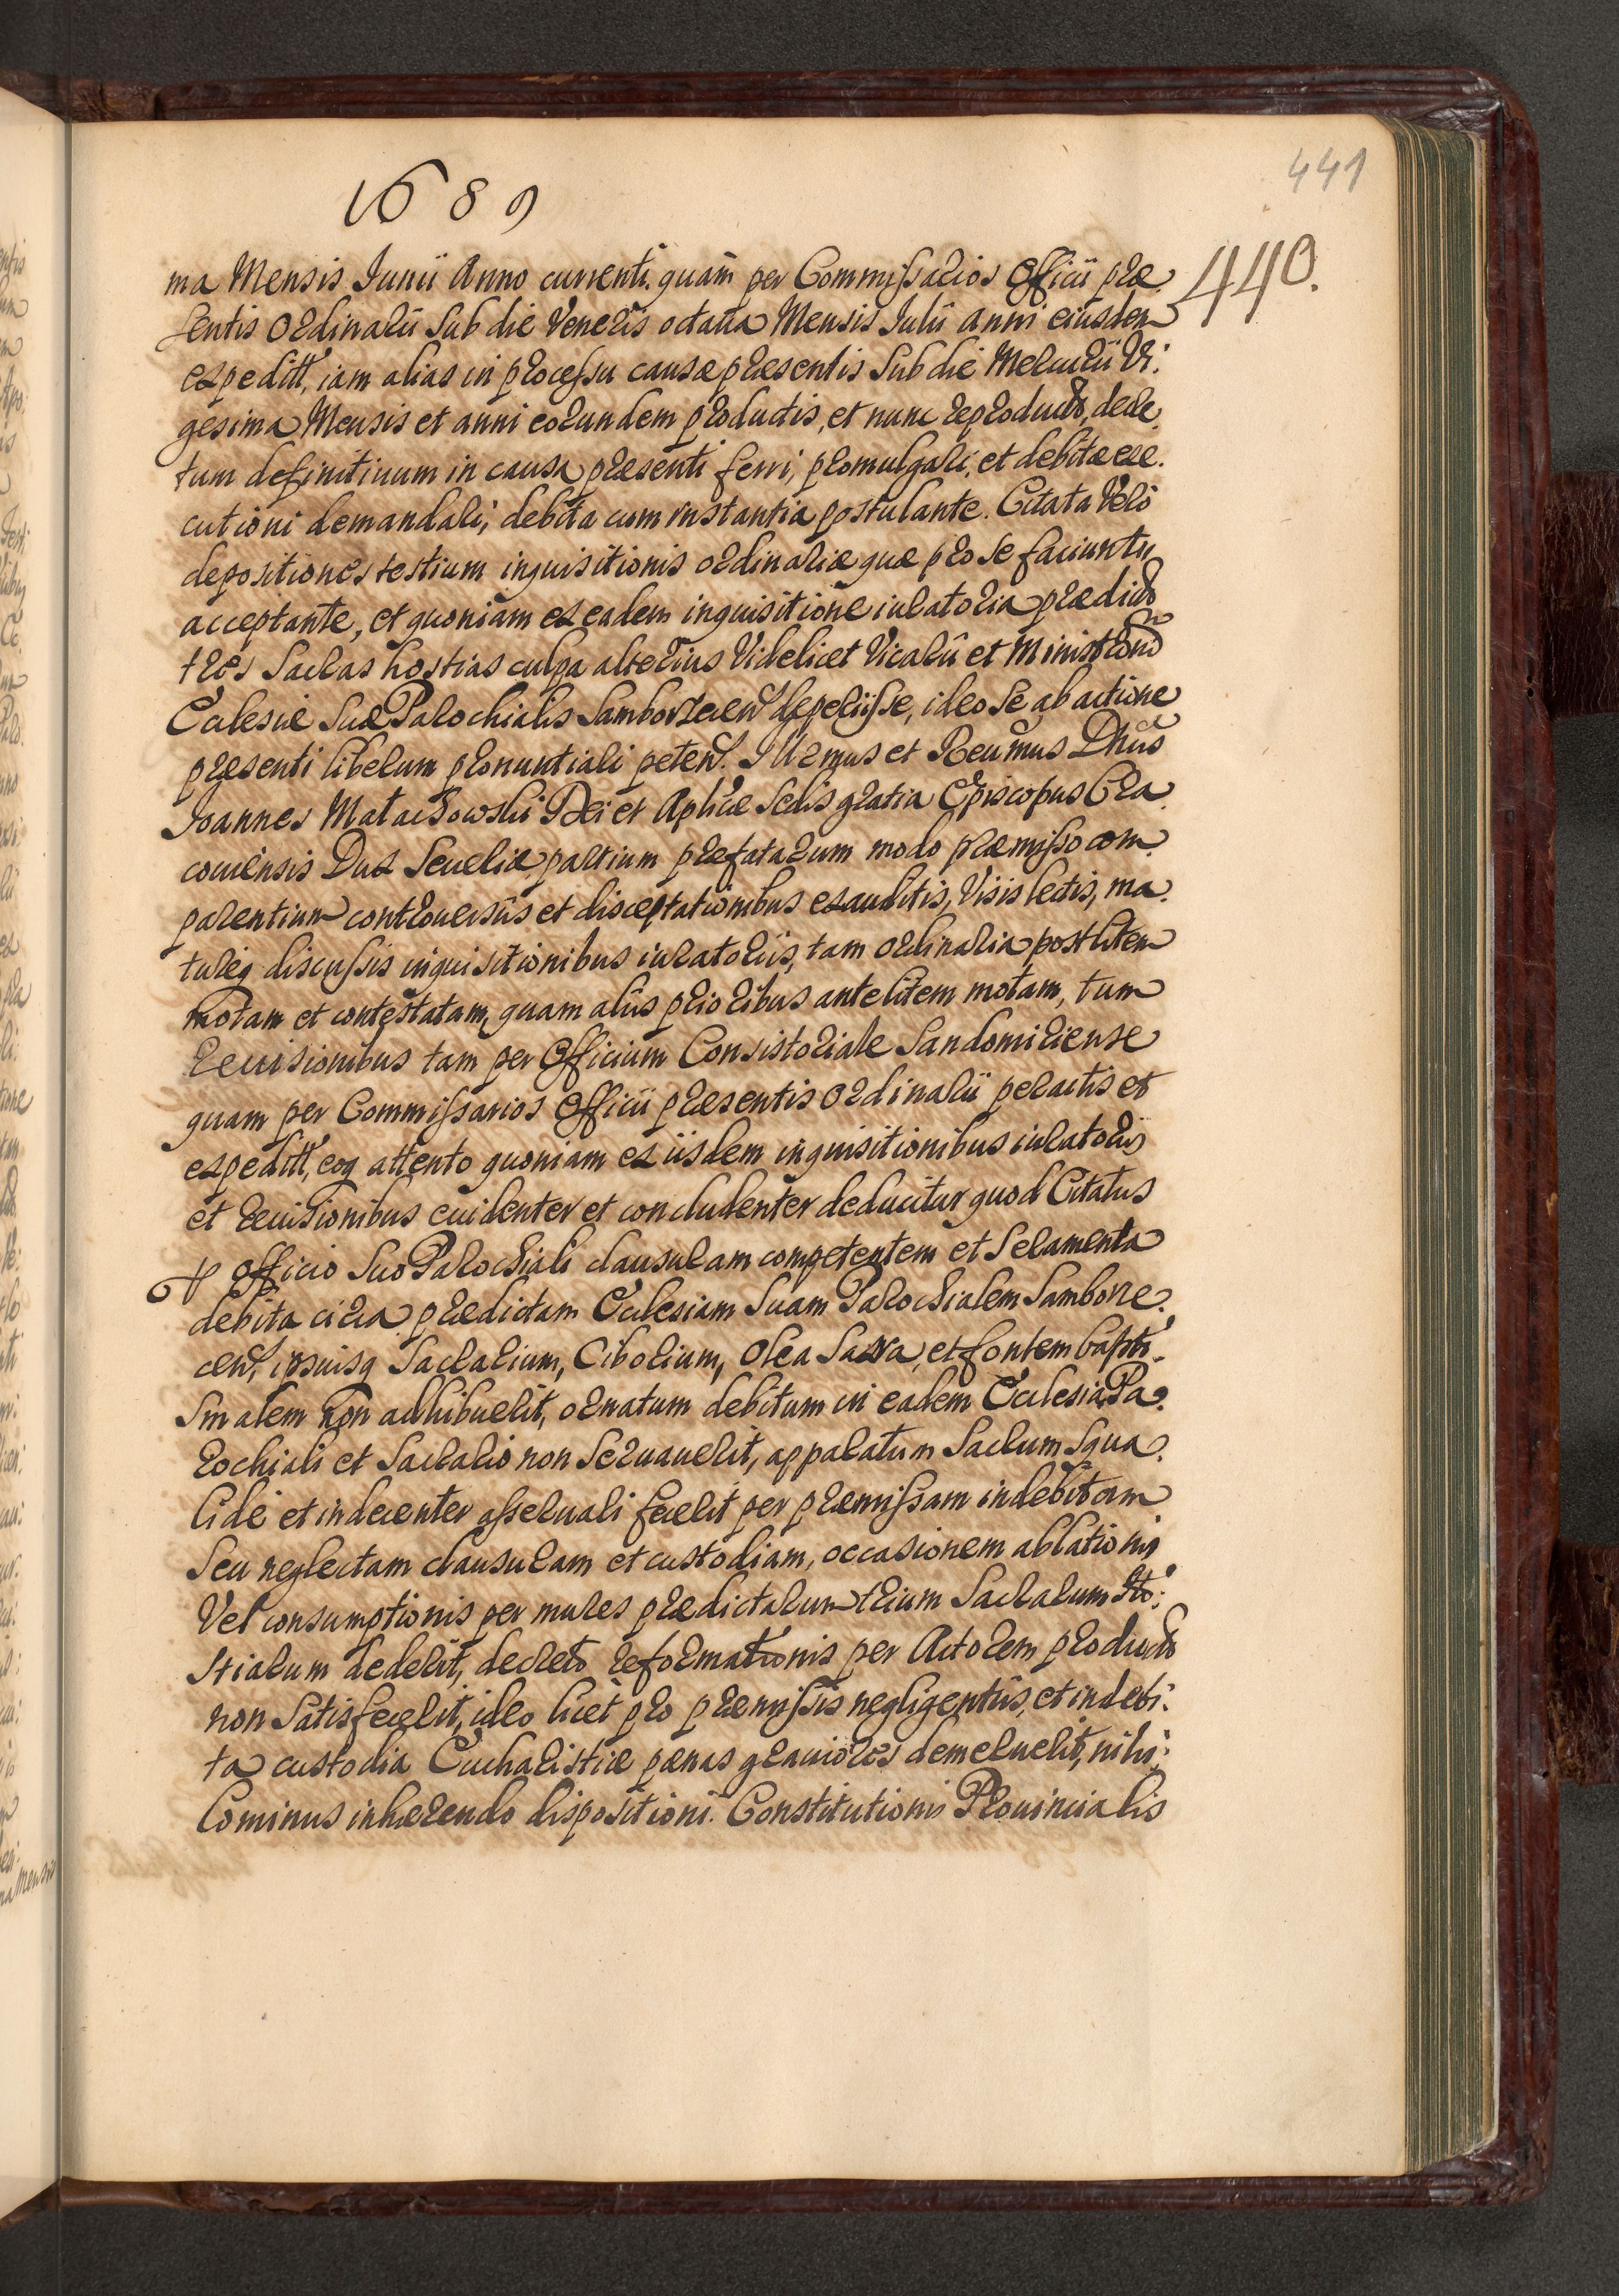 441
1689
440.
ma Mensis Junii Anno currenti. quam per Commissarios Officii præ
sentis Ordinarii sub die Veneris octaua Mensis Julii anni eiusdem
expeditt, iam alias in processu causæ præsentis sub die Mercurii Vi:
gesima Mensis et anni eorundem productis, et nunc reproductis, decre
tum definitiuum in causa præsenti ferri, promulgari, et debitæ exe.
cutioni demandari, debita cum instantia postulante. Citata Vero
depositiones testium inquisitionis ordinariæ quæ pro se faciuntur
acceptante, et quoniam ex eadem inquisitione iuratoria prædictas
tres sacras hostias culpa alterius Videlicet Vicarii et Ministrorum
Ecclesiæ suæ Parochialis Samborzecen deperiisse, ideo se ab actione
præsenti liberum pronuntiari peten. Illrmus et Reumus Dnus
Joannes Matachowski Dei et Aplicæ Sedis gratia Episcopus Cra
couiensis Dux Seueriæ, partium præfatarum modo præmisso com
parentium controuersiis et disceptationibus exauditis, Visis lectis, ma
tureq discussis inquisitionibus iuratoriis, tam ordinaria post litem
motam et contestatam, quam aliis prioribus ante litem motam, tum
reuisionibus tam per Officium Consistoriale Sandomiriense
quam per Commissarios Officii præsentis Ordinarii peractis et
expeditt, eoq attento quoniam ex iisdem inquisitionibus iuratoriis
et reuisionibus euidenter et concludenter deducitur quod Citatus
officio suo Parochiali clausuram competentem et seramenta
debita circa prædictam Ecclesiam suam Parochialem Samborze.
cen, ipsiusq Sacrarium, Ciborium, Olea Sacra, et fontem bapti.
smalem non adhibuerit, ornatum debitum in eadem Ecclesia Pa
rochiali et Sacrario non seruauerit, apparatum sacrum squa
lide et indecenter asseruari fecerit per præmissam indebitam
seu neglectam clausuram et custodiam, occasionem ablationis
Vel consumptionis per mures prædictarum trium Sacrarum Ho:
stiarum dederit, decreto reformationis per Actorem producto
non satisfecerit, ideo licet pro præmissis negligentiis, et indebi:
ta custodia Eucharistiæ pænas grauiores demeruerit, nihi:
lominus inhærendo dispositioni Constitutionis Prouincialis